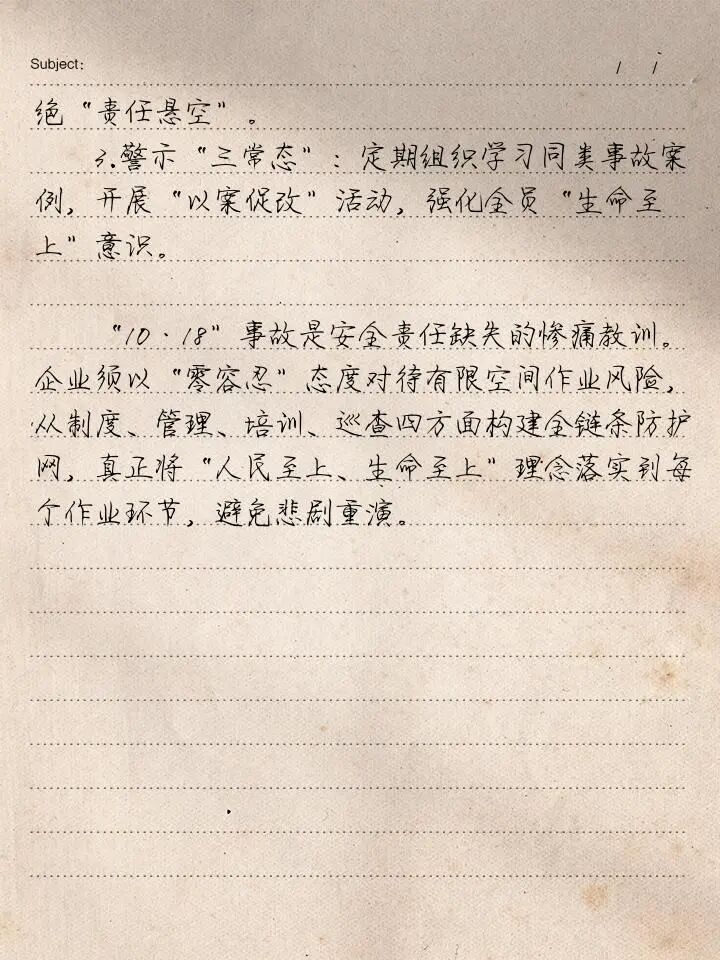 Subject:
/ /
绝“责任悬空”。
3.警示“三常态”:定期组织学习同类事故案
例,开展“以案促改”活动,强化全员“生命至
上”意识。
“10·18”事故是安全责任缺失的惨痛教训。
企业须以“零容忍”态度对待有限空间作业风险,
从制度、管理、培训、巡查四方面构建全链条防护
网,真正将“人民至上、生命至上”理念落实到每
个作业环节,避免悲剧重演。